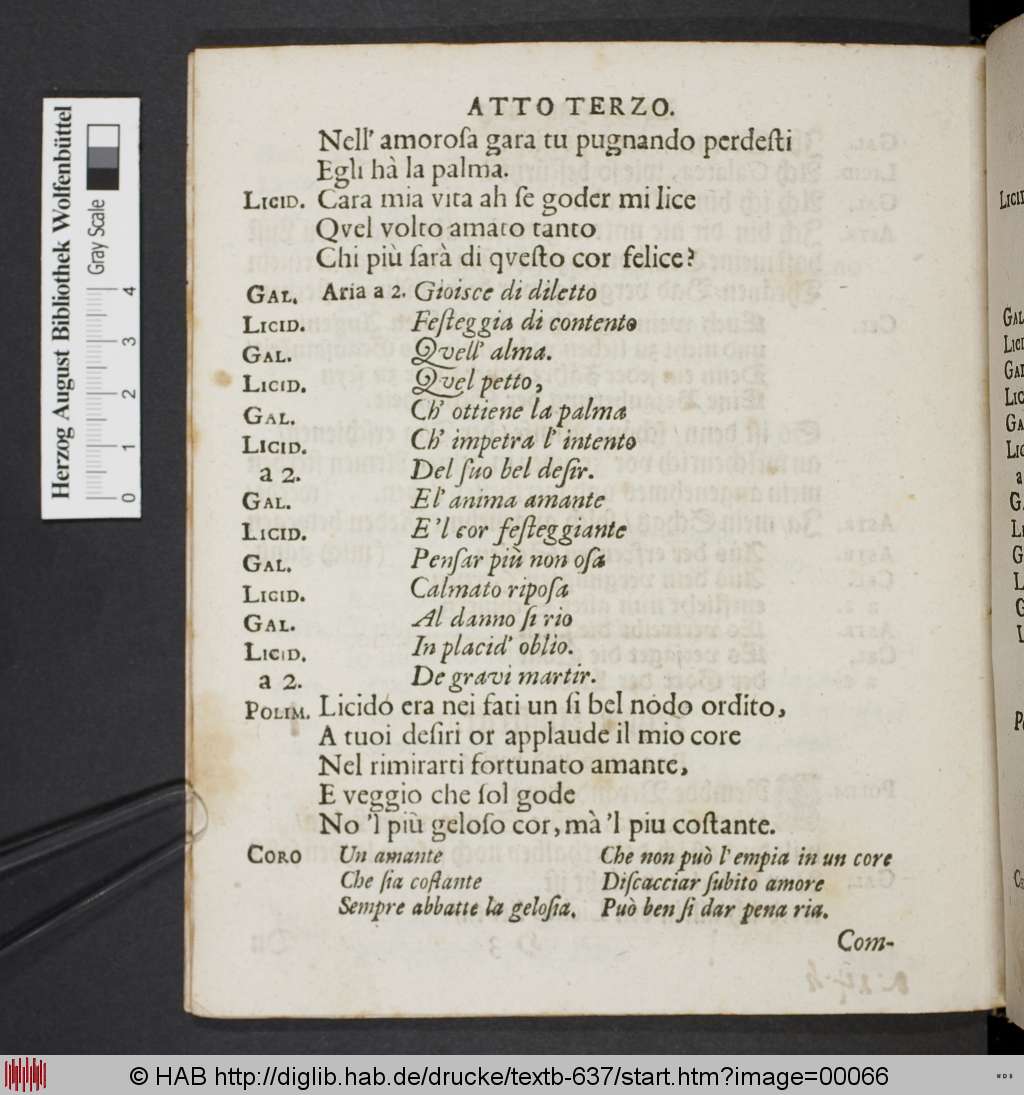 ATTO TERZO.
Nell' amoroſa gara tu pugnando perdeſti
Egli hà la palma.
LICID. Cara mia vita ah ſe goder mi lice
Qvel volto amato tanto
Chi più ſarà di qveſto cor felice?
GAL. Aria a 2. Gioisce di diletto
LICID. Feſteggia di contento
GAL. Qvell' alma.
LICID. Qvel petto,
GAL. Ch' ottiene la palma
LICID. Ch' impetra l' intento
a 2. Del ſuo bel deſir.
GAL. E l' anima amante
LICID. E 'l cor feſteggiante
GAL. Penſar più non oſa
LICID. Calmato ripoſa
GAL. Al danno ſi rio
LICID. In placid' oblio.
a 2. De gravi martir.
POLIM. Licidó era nei fati un ſi bel nodo ordito,
A tuoi deſiri or applaude il mio core
Nel rimirarti fortunato amante,
E veggio che ſol gode
No 'l più geloſo cor, mà 'l piu coſtante.
CORO Un amante
Che ſia coſtante
Sempre abbatte la geloſia.
Che non può l' empia in un core
Diſcacciar ſubito amore
Può ben ſi dar pena ria.
Com-
Herzog August Bibliothek Wolfenbüttel
Gray Scale
0 1 2 3 4
LICID
GAL
LICI
GAL
LIC
GA
LIC
a
G
LI
G
L
G
L
© HAB http://diglib.hab.de/drucke/textb-637/start.htm?image=00066